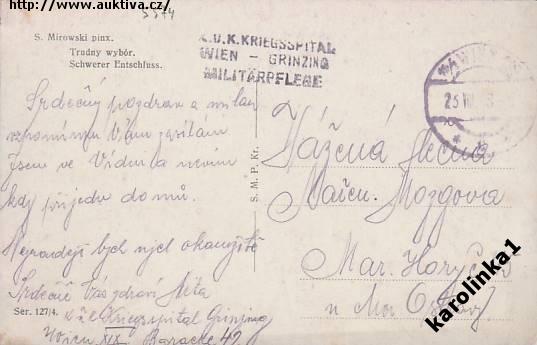 www.auktiva.cz
5574
S. Mirowski pinx.
Trudny wybór.
Schwerer Entschluss.
K.U.K. KRIEGSSPITAL
WIEN – GRINZING
MILITÄRPFLEGE
Srdečný pozdrav a milou
vzpomínku Vám zasílám
jsem ve Vídni a nevím
kdy přijedu domů.
Nejraději bych njel okamžitě
Srdečně Vás zdraví
k u k Kriegsspital Grinzing
Wien XIX Baracke 42
Ser. 127/4.
S. M. P. Kr.
Vážená slečna
Mařen. Mozgova
Mar. Hory
u Mor Ostravy
karolinka1